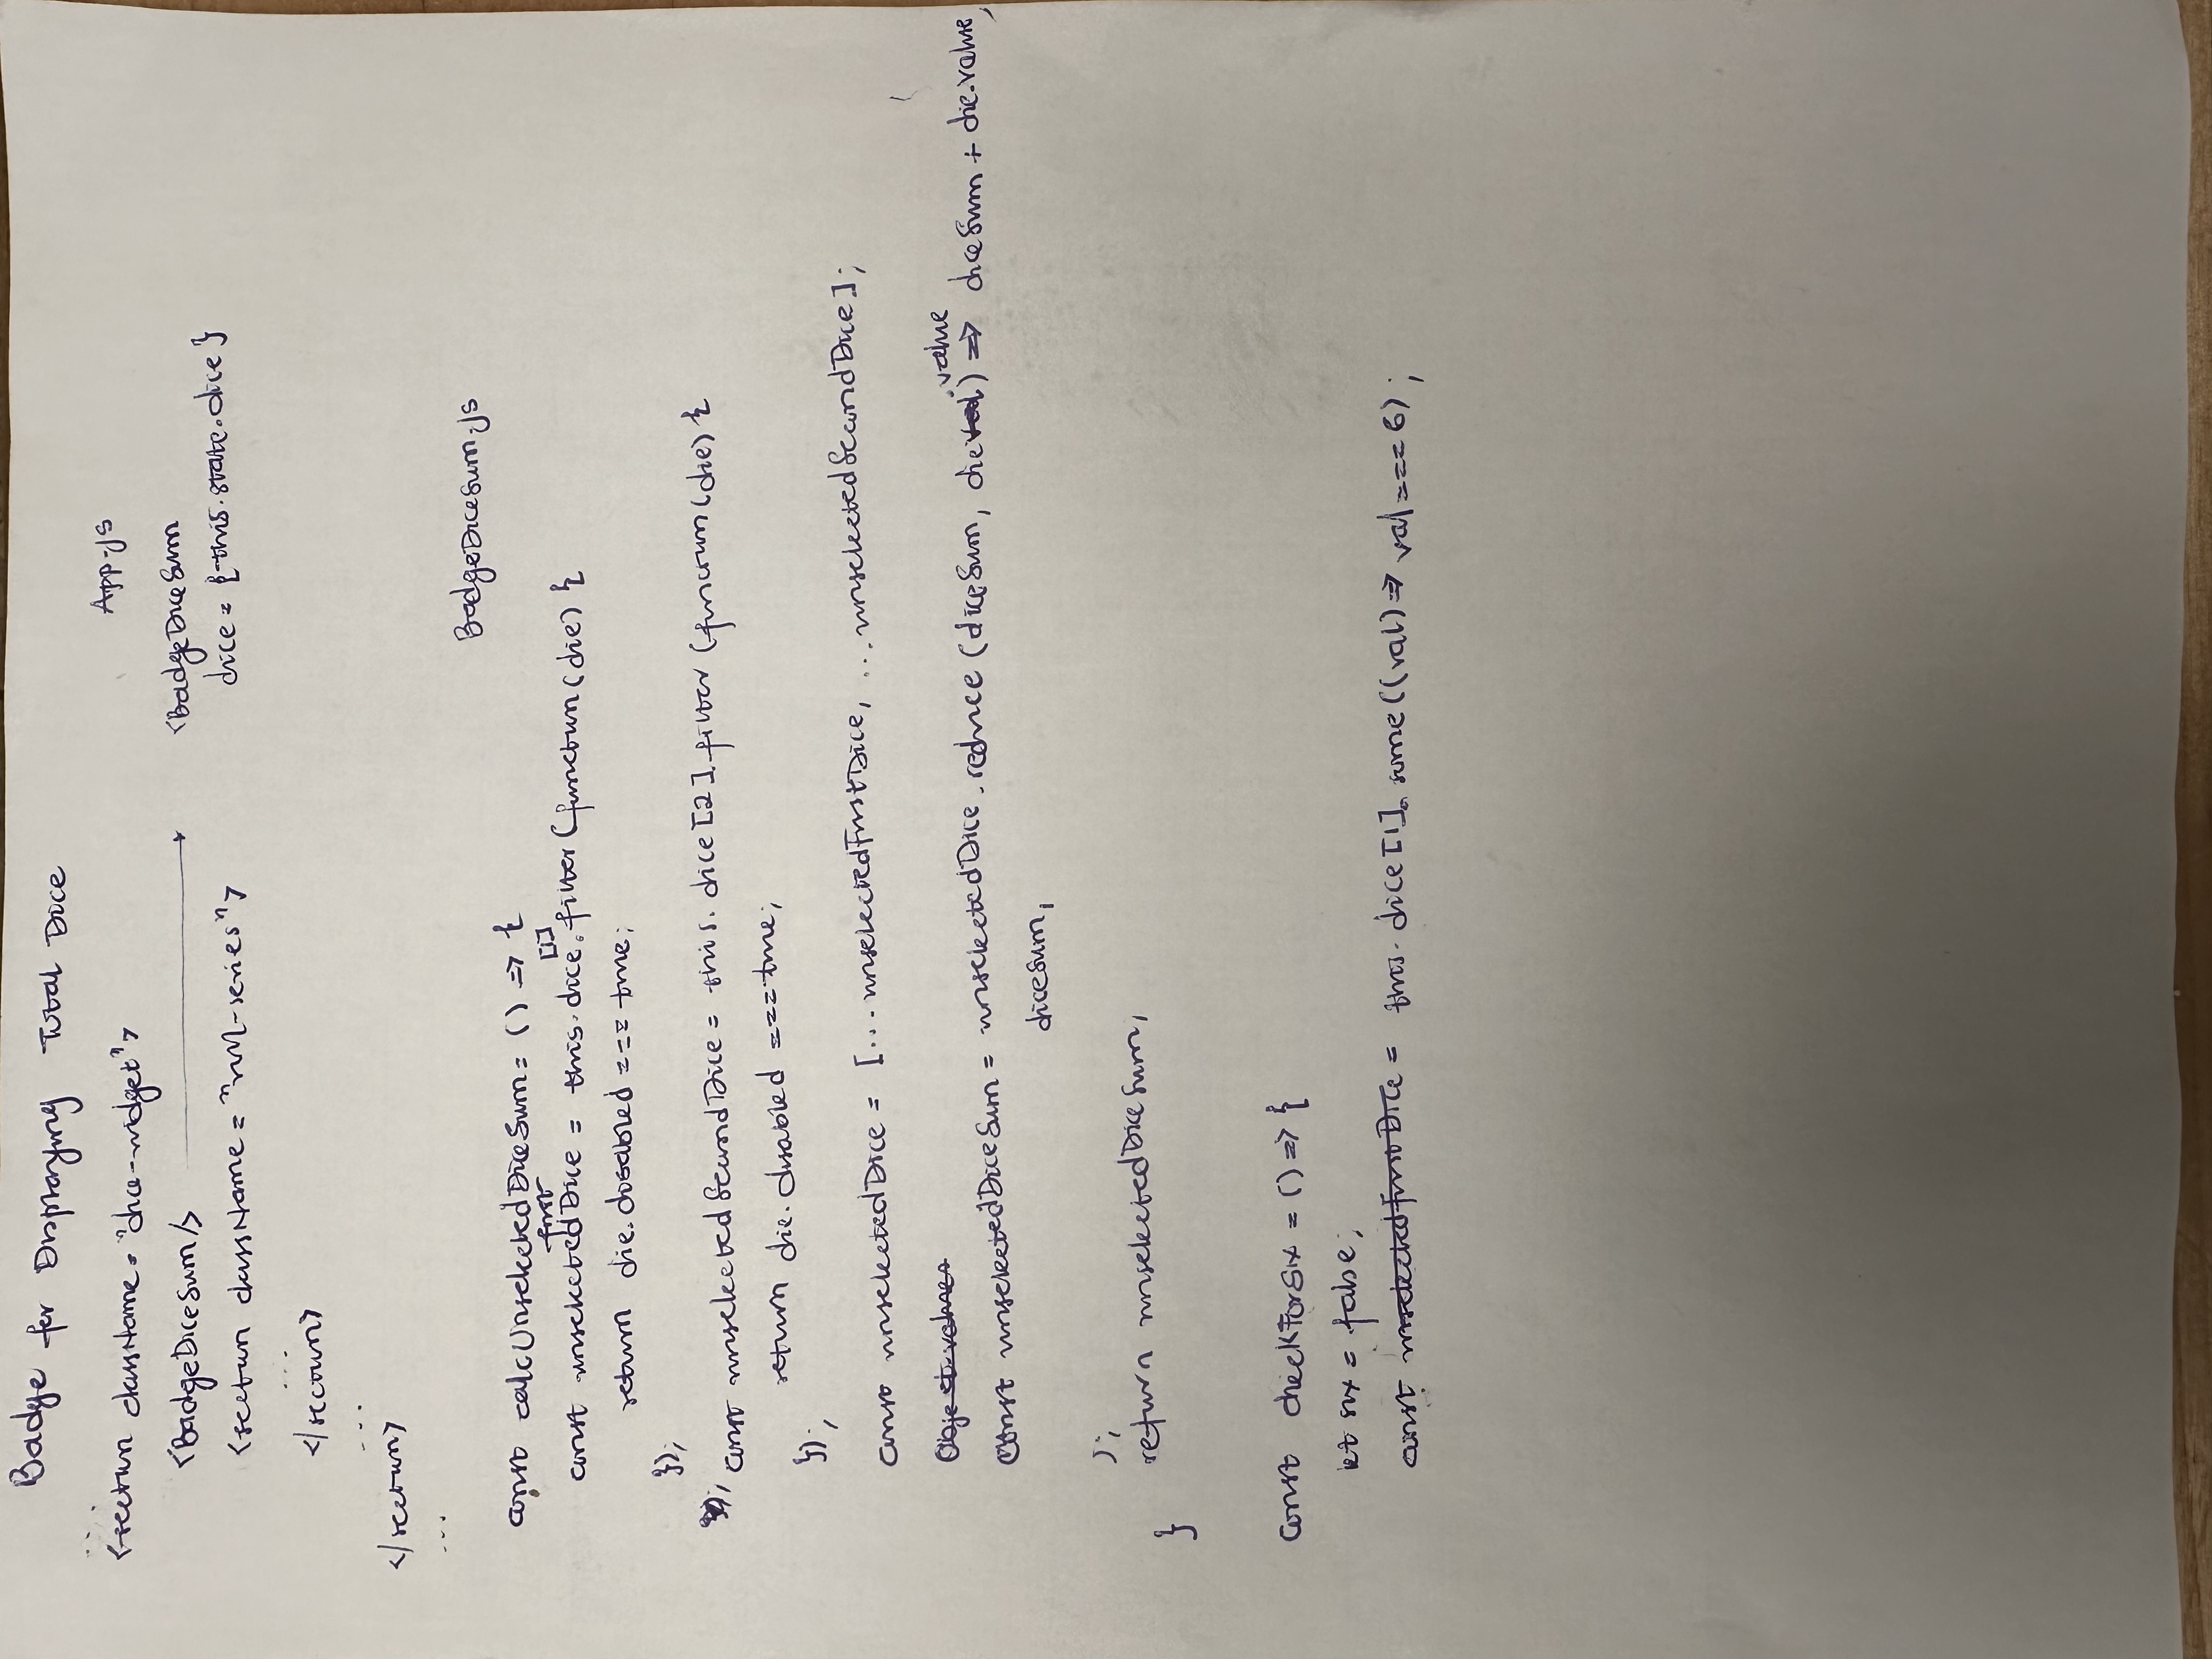 Badge for Displaying Total Dice
...
App.js
<section className = "dice-widget">
<BadgeDiceSum />
<BadgeDiceSum
dice = {this.state.dice}
<section className = "roll-series">
...
</section>
...
</section>
...
BadgeDiceSum.js
const calcUnselectedDiceSum = () => {
first [1]
const unselectedDice = this.dice.filter(function(die) {
return die.disabled === true;
});
const unselectedSecondDice = this.dice[2].filter(function(die) {
return die.disabled === true;
});
const unselectedDice = [...unselectedFirstDice, ...unselectedSecondDice];
Object.values
.value
const unselectedDiceSum = unselectedDice.reduce(diceSum, dieval) => diceSum + die.value,
diceSum,
);
return unselectedDiceSum;
}
const checkForSix = () => {
let six = false;
const unselectedFirstDice = this.dice[1].some((val) => val === 6);